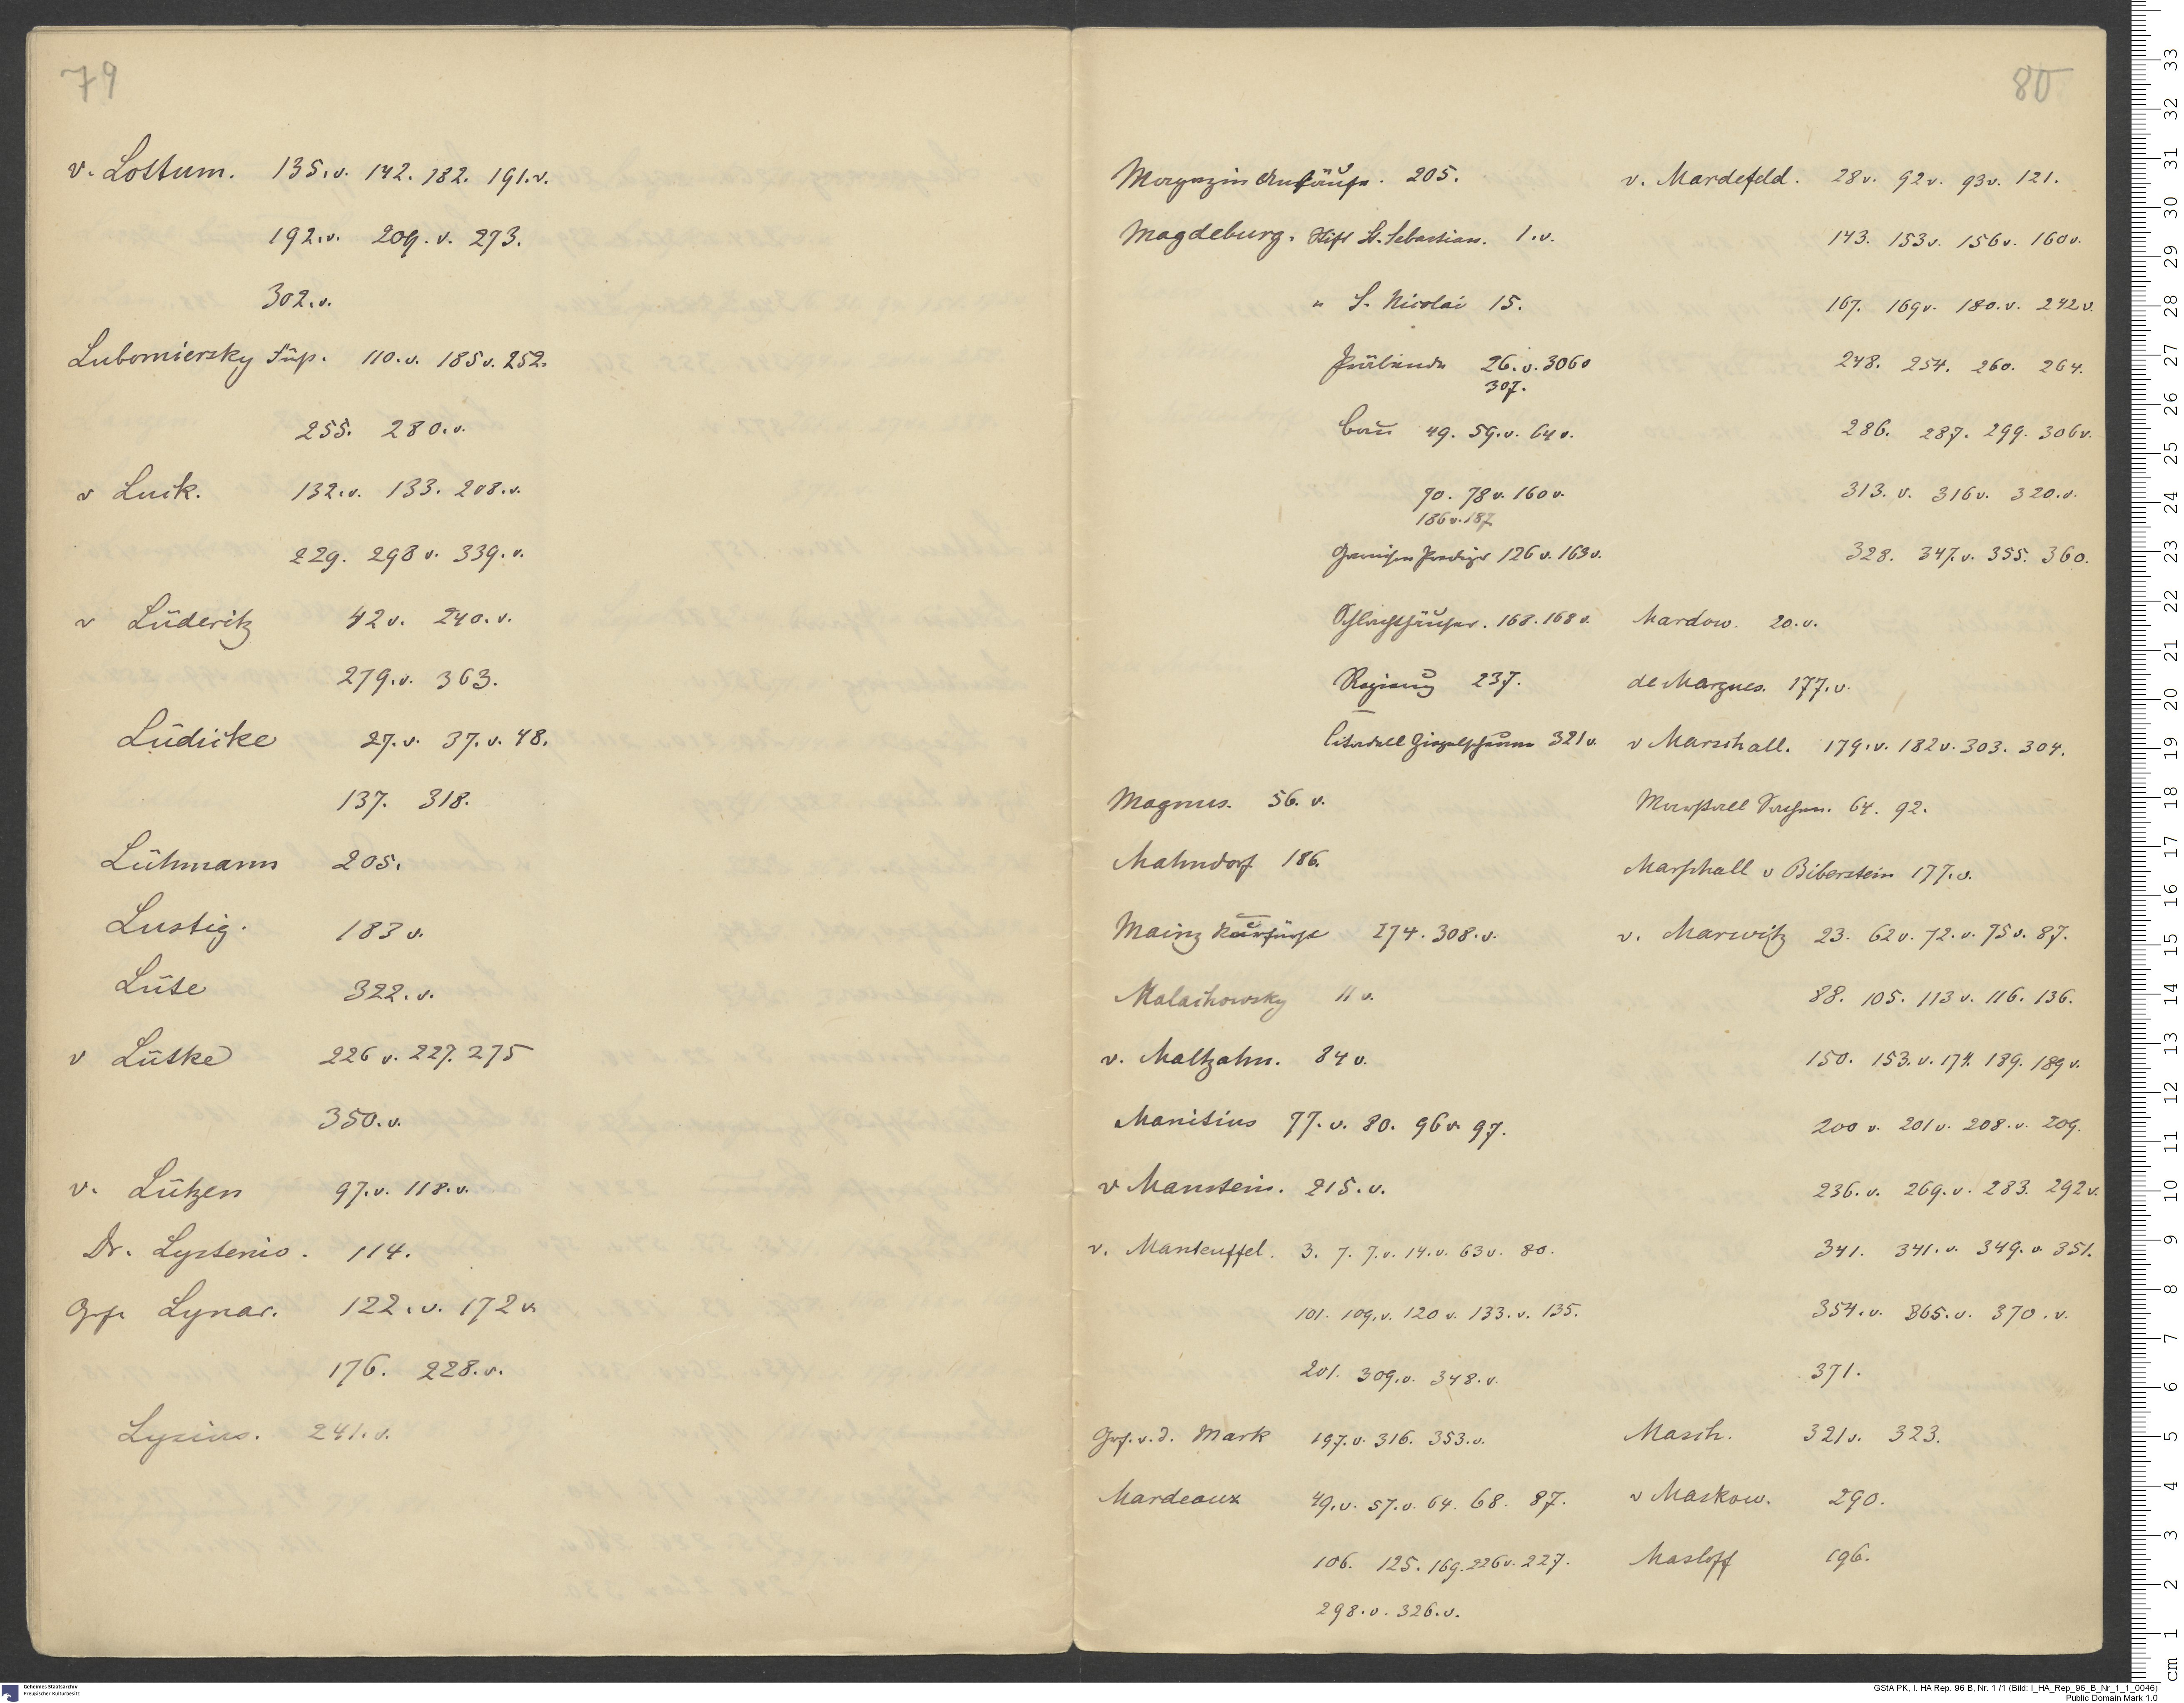 79
v. Lottum. 135.v. 142. 182. 191.v.
192.v. 209.v. 273.
302.v.
Lubomiersky Fürst. 110.v. 185v. 252.
255. 280.v.
v Luck. 132.v. 133. 208.v.
229. 298v. 339.v.
v Lüderitz 42v. 240.v.
279.v. 363.
Lüdicke 27.v. 37.v. 48.
137. 318.
Lühmann 205.
Lustig. 183v.
Lüte 322.v.
v Lütke 226v. 227. 275
350.v.
v. Lützen 97.v. 118.v.
Dr. Lystenio. 114.
Grf. Lynar. 122.v. 172v.
176. 228.v.
Lysius. 241.v.
80
Magazin Ankäufe. 205.
Magdeburg. Stift St. Sebastian. 1.v.
" S. Nicolai 15.
Präbende 26.v. 306v
307.
Bau 49. 59.v. 64v.
70. 78v. 160v.
186v. 187
Garnison Prediger 126v. 163v.
Schlachthäuser. 168. 168v.
Regierung 237.
Citadell 321v.
Magnus. 56.v.
Mahndorf 186.
Mainz Kurfürst 274. 308.v.
Malachowsky 11v.
v. Maltzahn. 84v.
Manitius 77.v. 80. 96v 97.
v Manstein. 215.v.
v. Manteuffel. 3. 7. 7.v. 14.v. 63v. 80.
101. 109.v. 120v. 133.v. 135.
201. 309.v. 348.v.
Grf. v. d. Mark 197.v. 316. 353.v.
Mardeaux 49.v. 57.v. 64. 68. 87.
106. 125. 169. 226v. 227.
298.v. 326.v.
v. Mardefeld. 28v. 92v. 93v. 121.
143. 153v. 156v. 160v.
167. 169v. 180.v. 242v.
248. 254. 260. 264.
286. 287. 299. 306v.
313.v. 316v. 320.v.
328. 347.v. 355. 360.
Mardow. 20.v.
de Margues. 177.v.
v Marschall. 179.v. 182v. 303. 304.
Marstall Sachen. 64. 92.
Marschall v Biberstein 177.v.
v. Marwitz 23. 62v. 72.v. 75v. 87.
88. 105. 113v. 116. 136.
150. 153.v. 174. 189. 189v.
200v. 201v. 208.v. 209.
236.v. 269.v. 283. 292v.
341. 341.v. 349.v. 351.
354.v. 365.v. 370.v.
371.
Masch. 321v. 323.
v Maskow. 290.
Masloff 196.
Geheimes Staatsarchiv
Preußischer Kulturbesitz
GStA PK, I. HA Rep. 96 B, Nr. 1 /1 (Bild: I_HA_Rep_96_B_Nr_1_1_0046)
Public Domain Mark 1.0